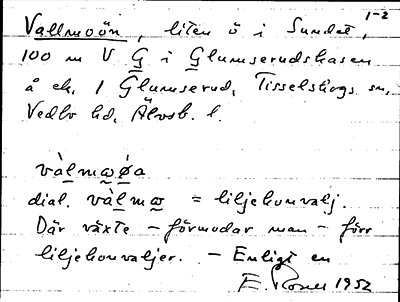 1-2
Vallmoön, liten ö i Sundet,
100 m V G i Glumserudskasen
å ek. 1 Glumserud, Tisselskogs sn,
Vedbo hd, Älvsb. l.
vàlmωøa
dial. vàlmω = liljekonvalj.
Där växte - förmodar man - förr
liljekonvaljer. - Enligt en
E. Rosell 1952